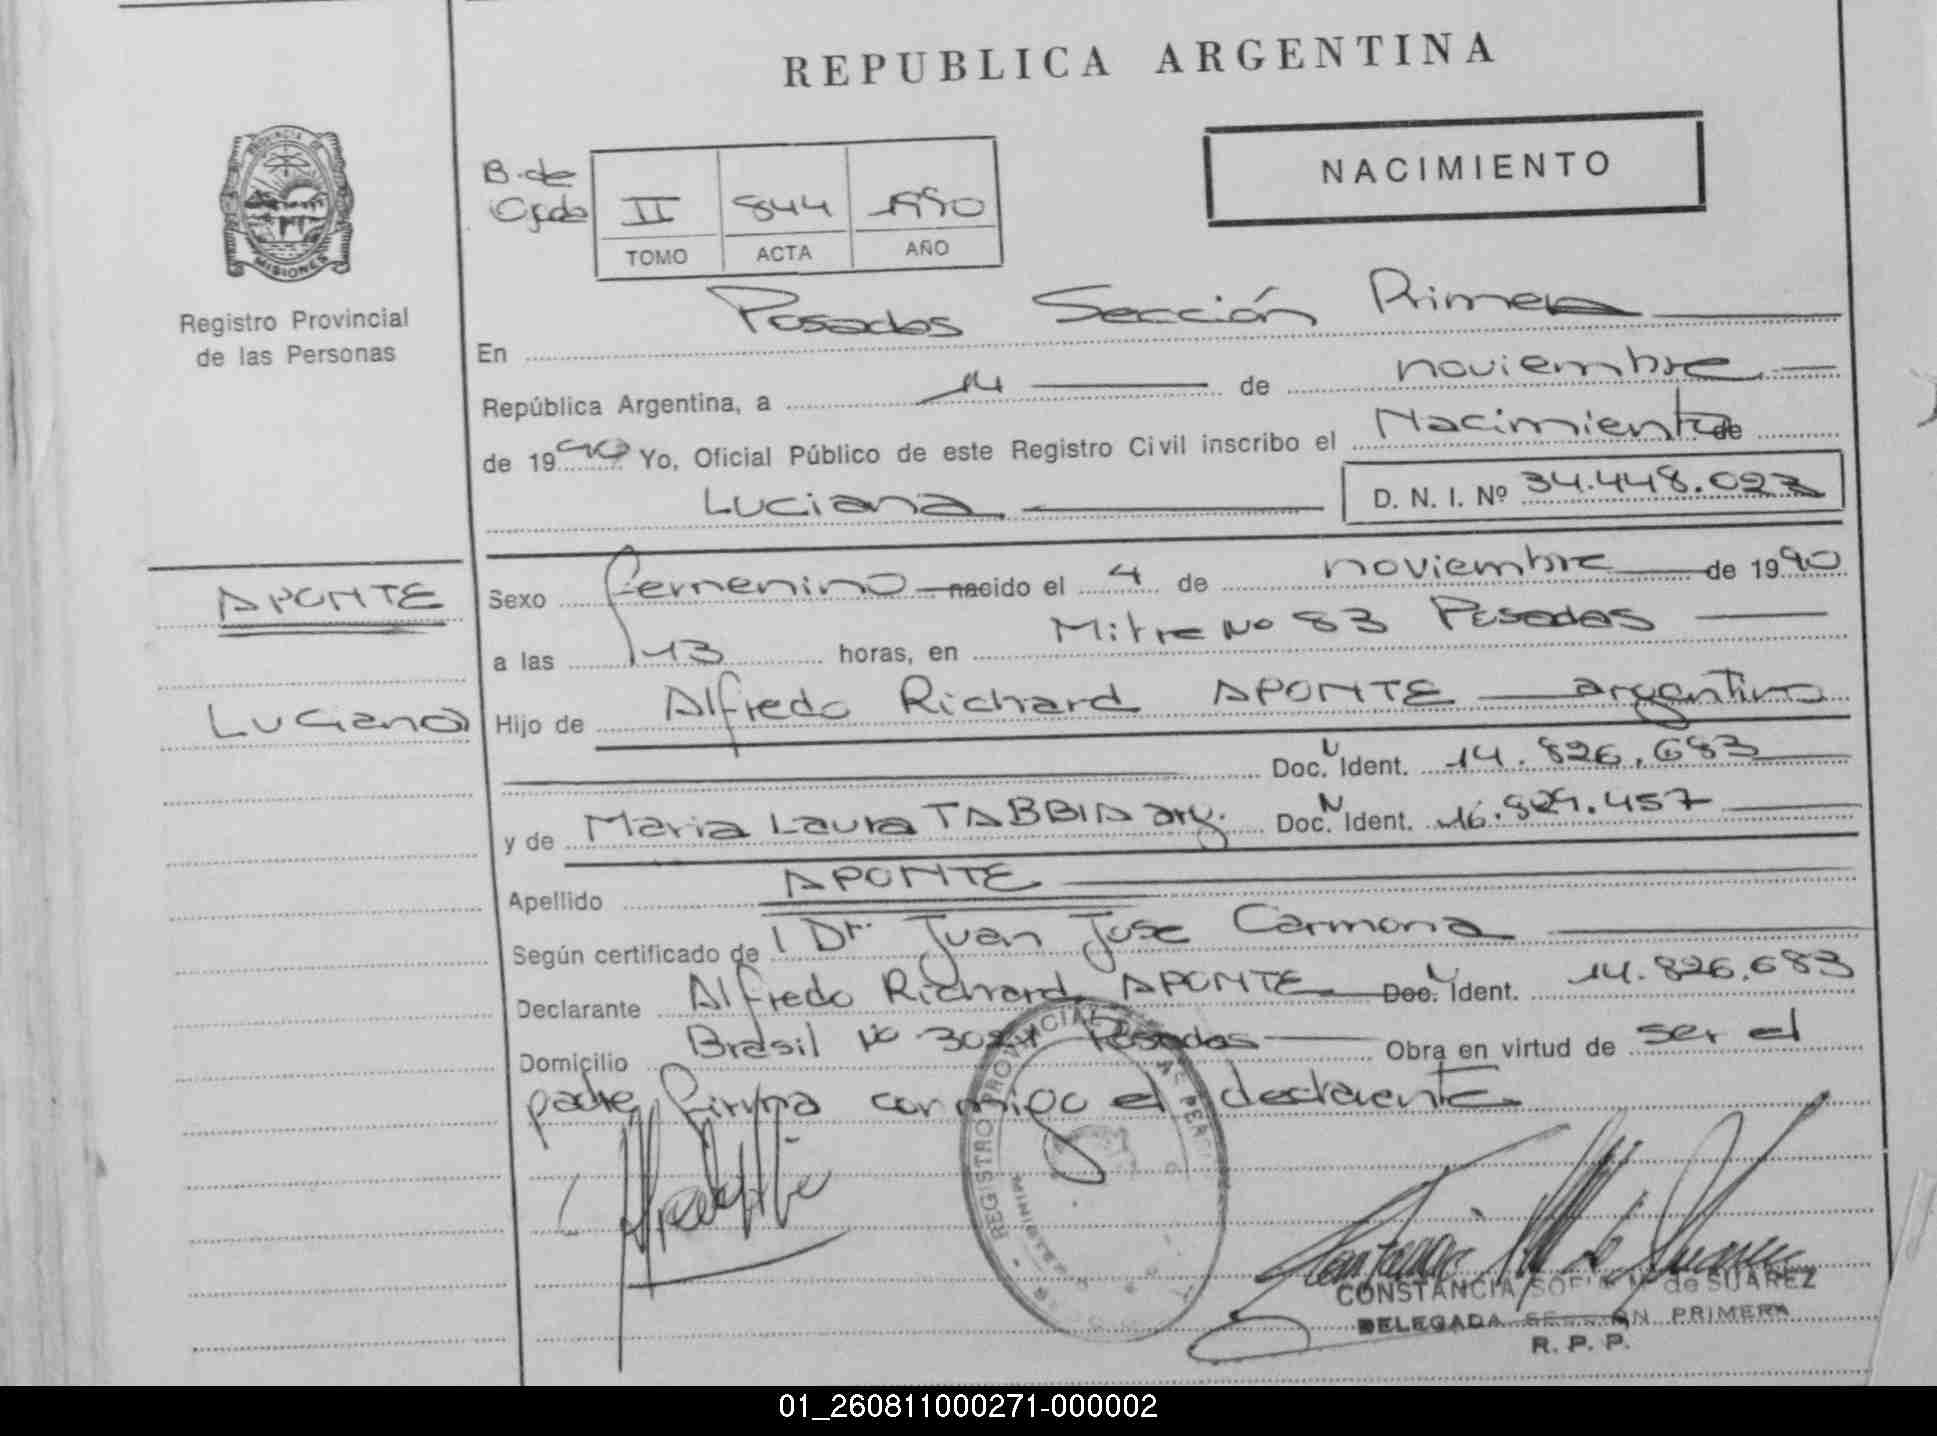 REPUBLICA ARGENTINA
NACIMIENTO
PROVINCIA DE
MISIONES
Registro Provincial
de las Personas
B. de
II 844 1990
TOMO ACTA AÑO
En Posadas Sección Primera
República Argentina, a 14 de noviembre
de 1990 Yo, Oficial Público de este Registro Civil inscribo el Nacimiento de
Luciana D. N. I. Nº 34.448.027
APONTE
Luciana
Sexo femenino nacido el 4 de noviembre de 1990
a las 13 horas, en Mitre No 83 Posadas
Hijo de Alfredo Richard APONTE argentino
Doc. Ident. 14.826.683
y de Maria Laura TABBIA arg. Doc. N Ident. 16.829.457
Apellido APONTE
Según certificado de l Dr. Juan Jose Carmona
Declarante Alfredo Richard APONTE Doc. Ident. 14.826.683
Domicilio Brasil No Posadas Obra en virtud de ser el
padre firma conmigo el declarante
REGISTRO PROVINCIAL DE LAS PERSONAS
CONSTANCIA SOFIA M. de SUAREZ
DELEGADA SECCION PRIMERA
R. P. P.
01_260811000271-000002